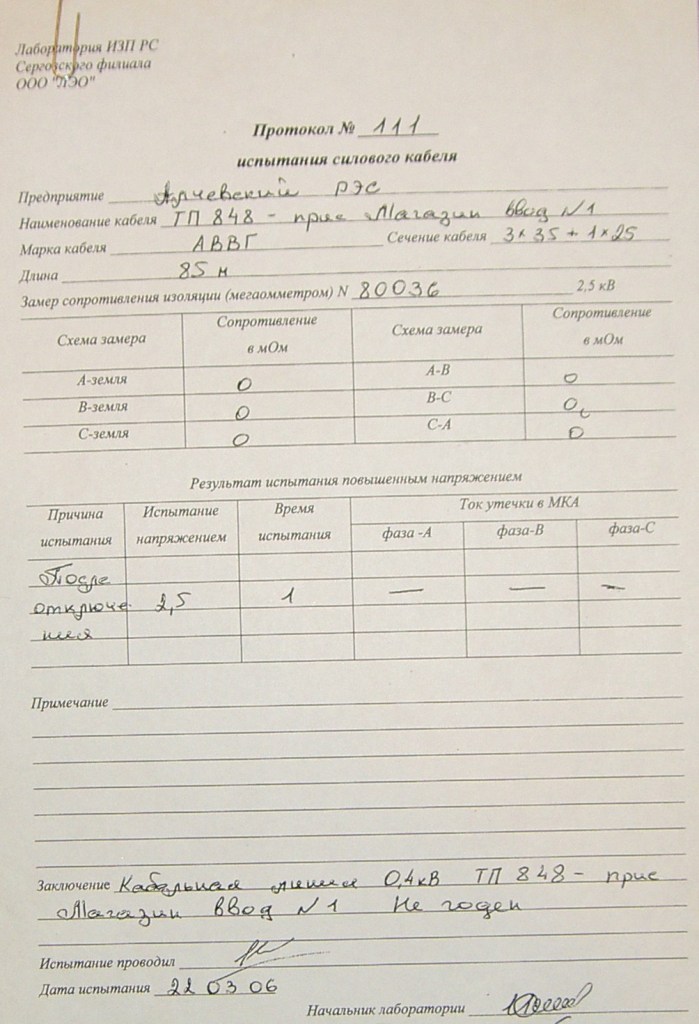 Лаборатория ИЗП РС
Серговского филиала
ООО "ЛЭО"
Протокол № 111
испытания силового кабеля
Предприятие Алчевский РЭС
Наименование кабеля ТП 848 - прис Магазин ввод N1
Марка кабеля АВВГ Сечение кабеля 3×35 + 1×25
Длина 85 м
Замер сопротивления изоляции (мегаомметром) N 80036 2,5 кВ
Схема замера Сопротивление в мОм Схема замера Сопротивление в мОм
А-земля 0 А-В 0
В-земля 0 В-С 0
С-земля 0 С-А 0
Результат испытания повышенным напряжением
Причина испытания Испытание напряжением Время испытания Ток утечки в МКА
фаза -А фаза-В фаза-С
После
отключе 2,5 1 — — —
ния
Примечание
Заключение Кабельная линия 0,4кВ ТП 848 - прис
Магазин ввод N1 Не годен
Испытание проводил
Дата испытания 22 03 06
Начальник лаборатории